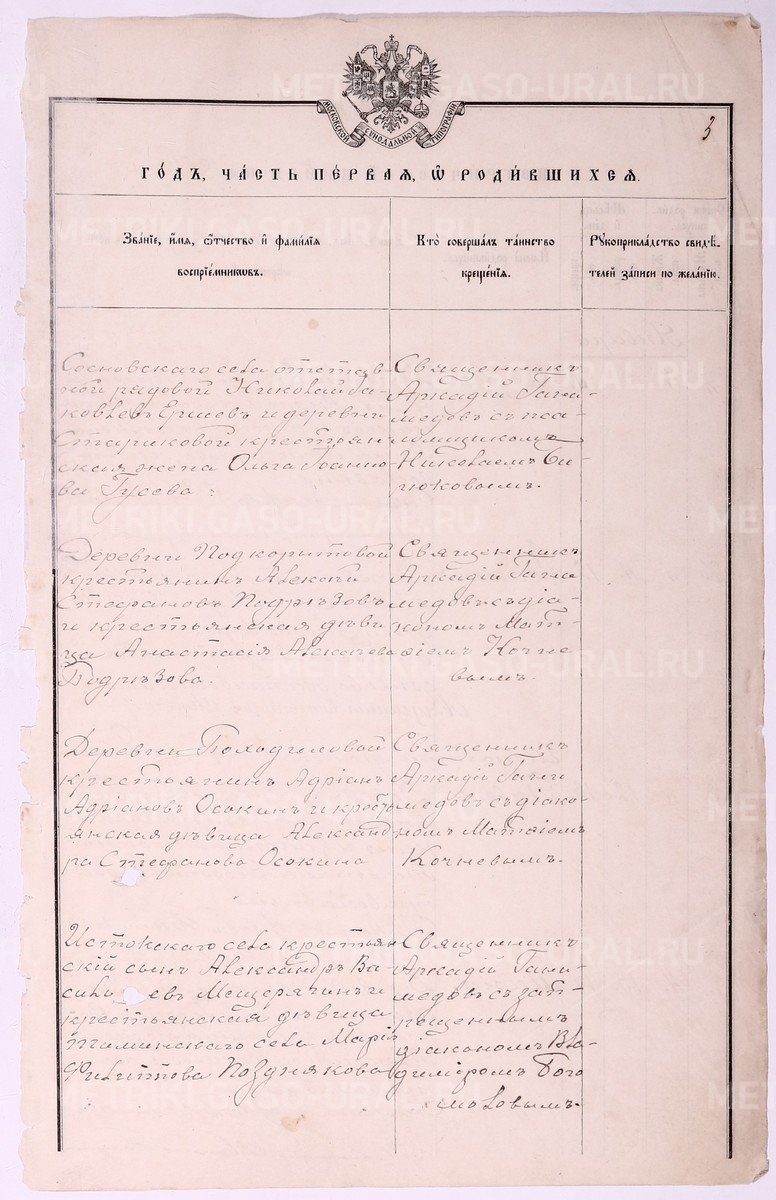 3
МОСКОВСКОЙ СѴНОДАЛЬНОЙ ТИПОГРАФІИ
ГОДЪ, ЧАСТЬ ПЕРВАЯ, Ѿ РОДИВШИХСЯ.
Званіе, имя, отчество и фамилія
воспріемниковъ.
Кто совершалъ таинство
крещенія.
Рукоприкладство свидѣ-
телей записи по желанію.
Сосновскаго села отстав
ной рядовой Николай Іа-
ковлевъ Ершевъ и деревни
Стариковой крестьян
ская жена Ольга Іоанно
ва Гусева.
Священникъ
Аркадій Гани
медовъ съ пса-
ломщикомъ
Николаемъ Би-
рюковымъ.
Деревни Подкорытовой
крестьянинъ Алексѣй
Стефановъ Подрѣзовъ
и крестьянская дѣви
ца Анастасія Алексѣева
Подрѣзова.
Священникъ
Аркадій Гани
медовъ съ діа-
кономъ Мат-
ѳіемъ Кочне
вымъ.
Деревни Походиловой
крестьянинъ Адріанъ
Адріановъ Осокинъ и кресть
янская дѣвица Александ
ра Стефанова Осокина
Священникъ
Аркадій Гани
медовъ съ діако-
номъ Матѳіемъ
Кочневымъ.
Истокскаго села крестьян
скій сынъ Александръ Ва
сильевъ Мещерягинъ и
крестьянская дѣвица
Таминскаго села Марія
Филиппова Позднякова
Священникъ
Аркадій Гани
медовъ съ зап-
рещеннымъ
діакономъ Вла-
диміромъ Бого
моловымъ.
METRIKI.GASO-URAL.RU